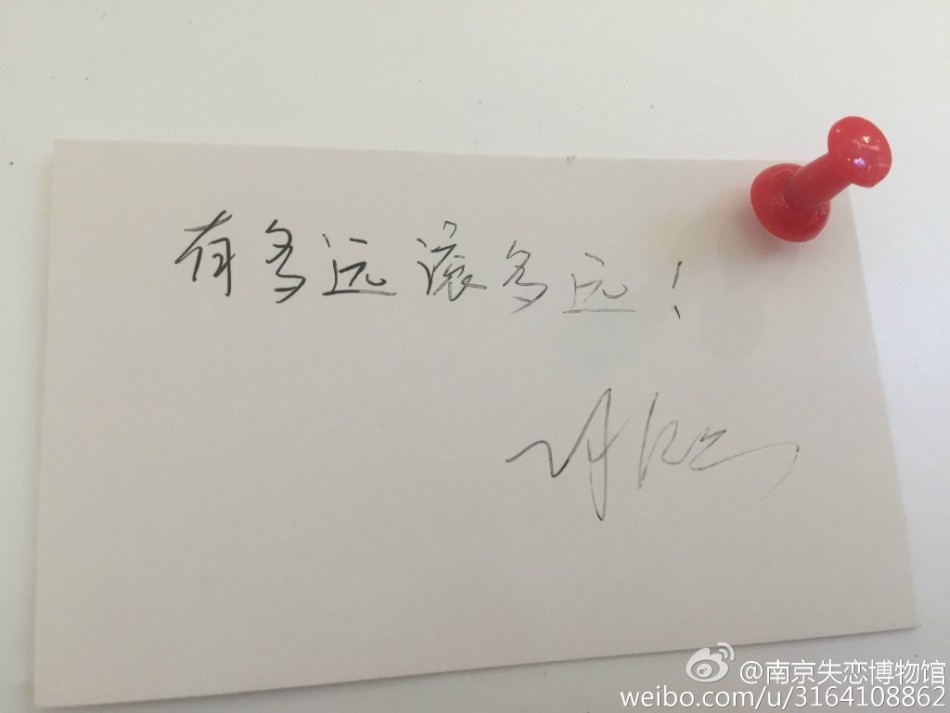 有多远滚多远！
@南京失恋博物馆
weibo.com/u/3164108862